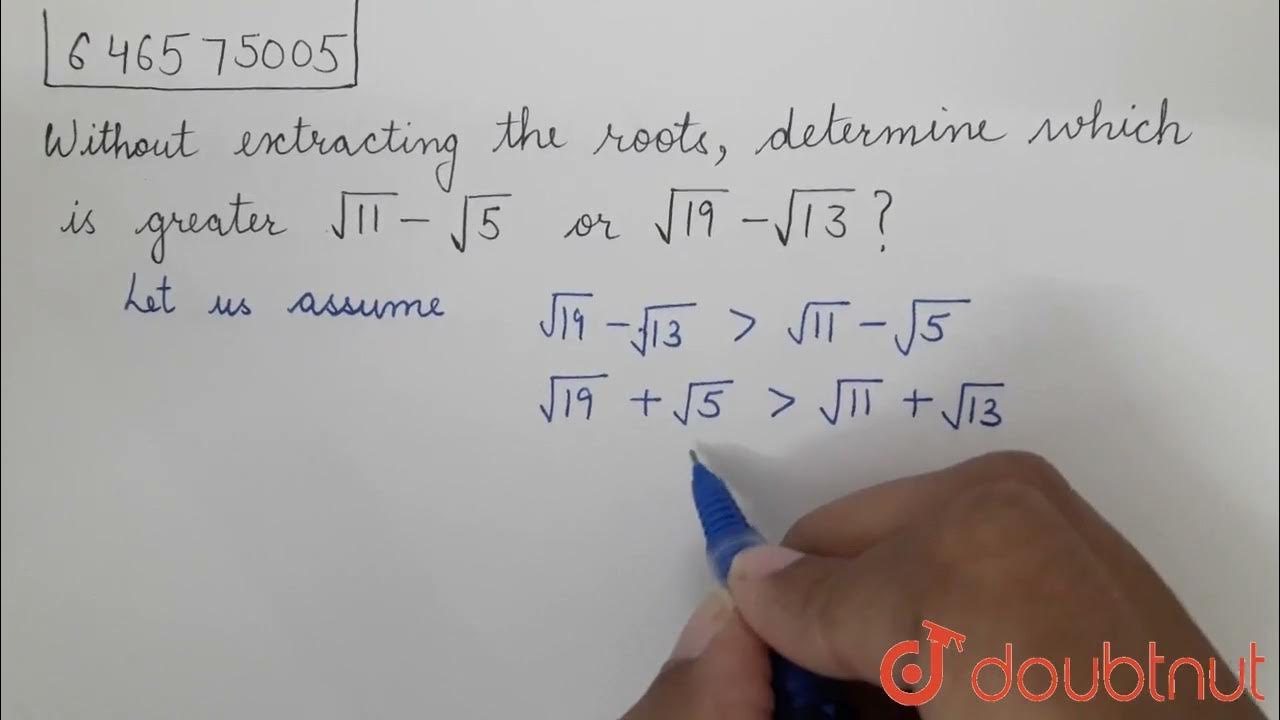 6 465 75005
Without extracting the roots, determine which
is greater √11 - √5 or √19 - √13 ?
Let us assume √19 - √13 > √11 - √5
√19 + √5 > √11 + √13
doubtnut